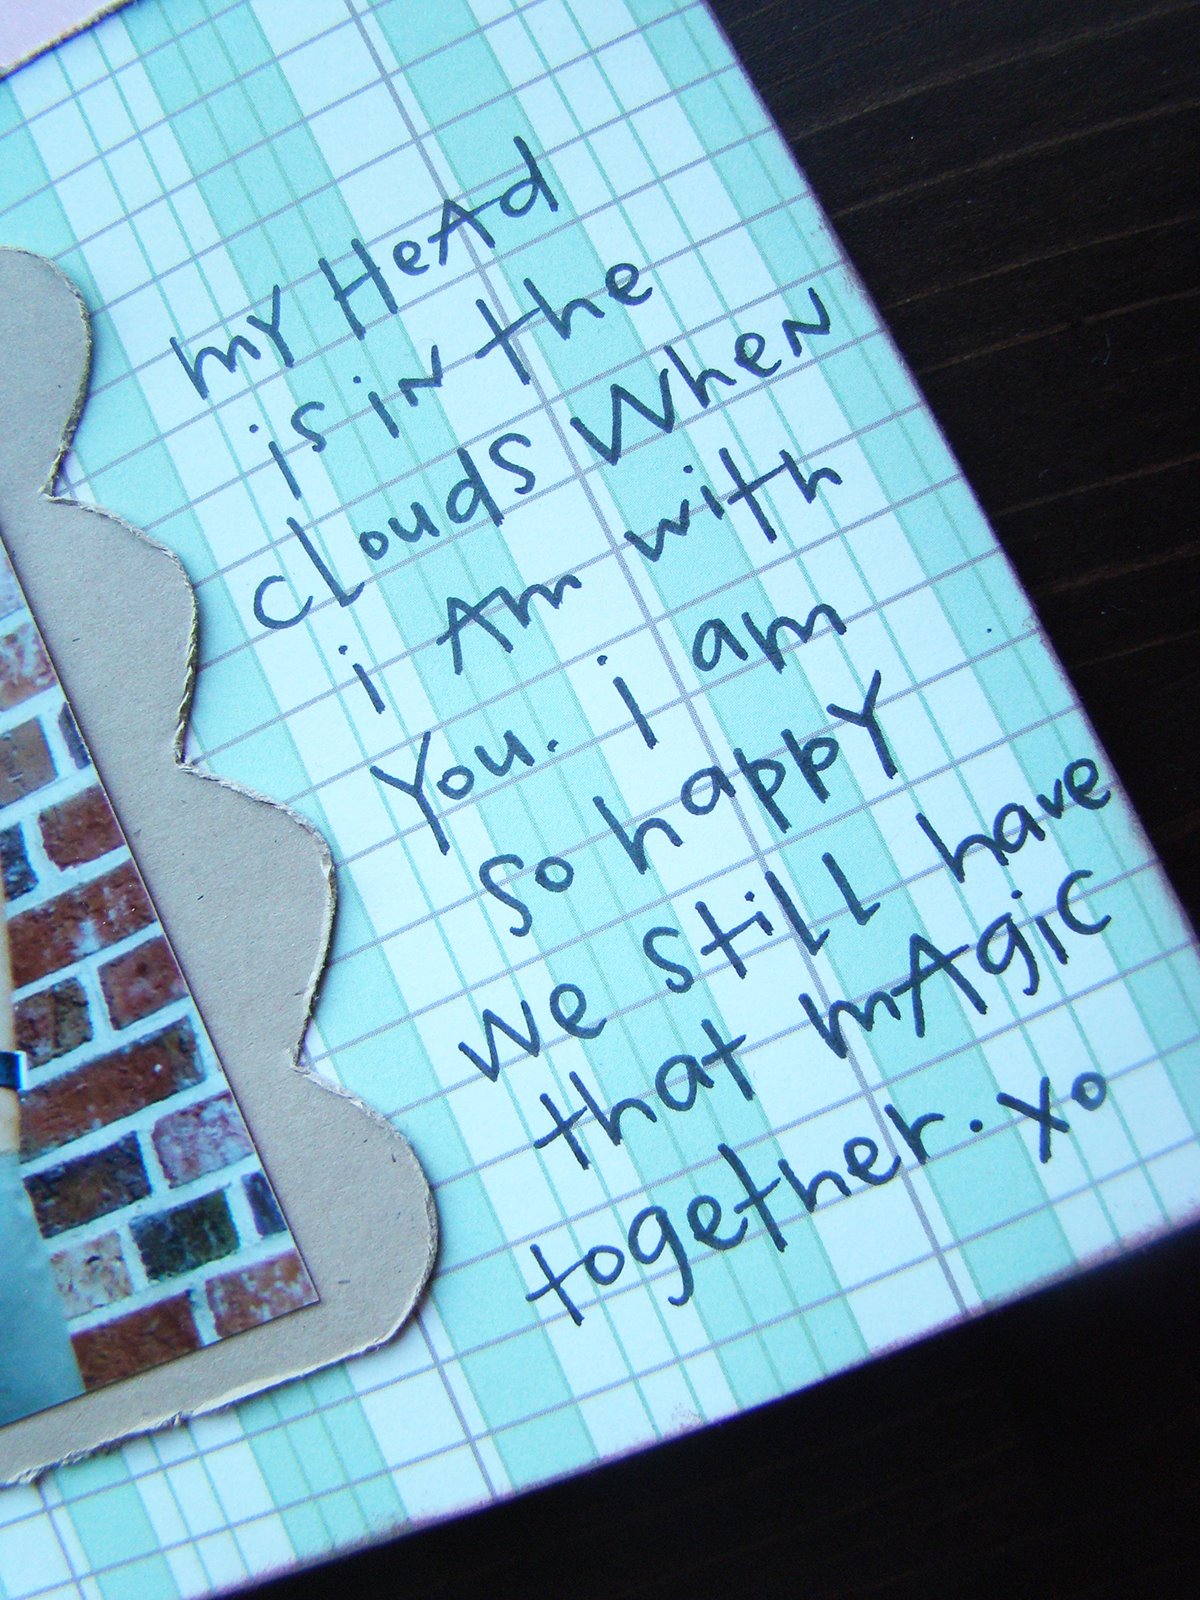 my HeAd
is iN the
cLoudS WheN
i Am with
You. i am
So happY
we still have
that mAgic
together. xo